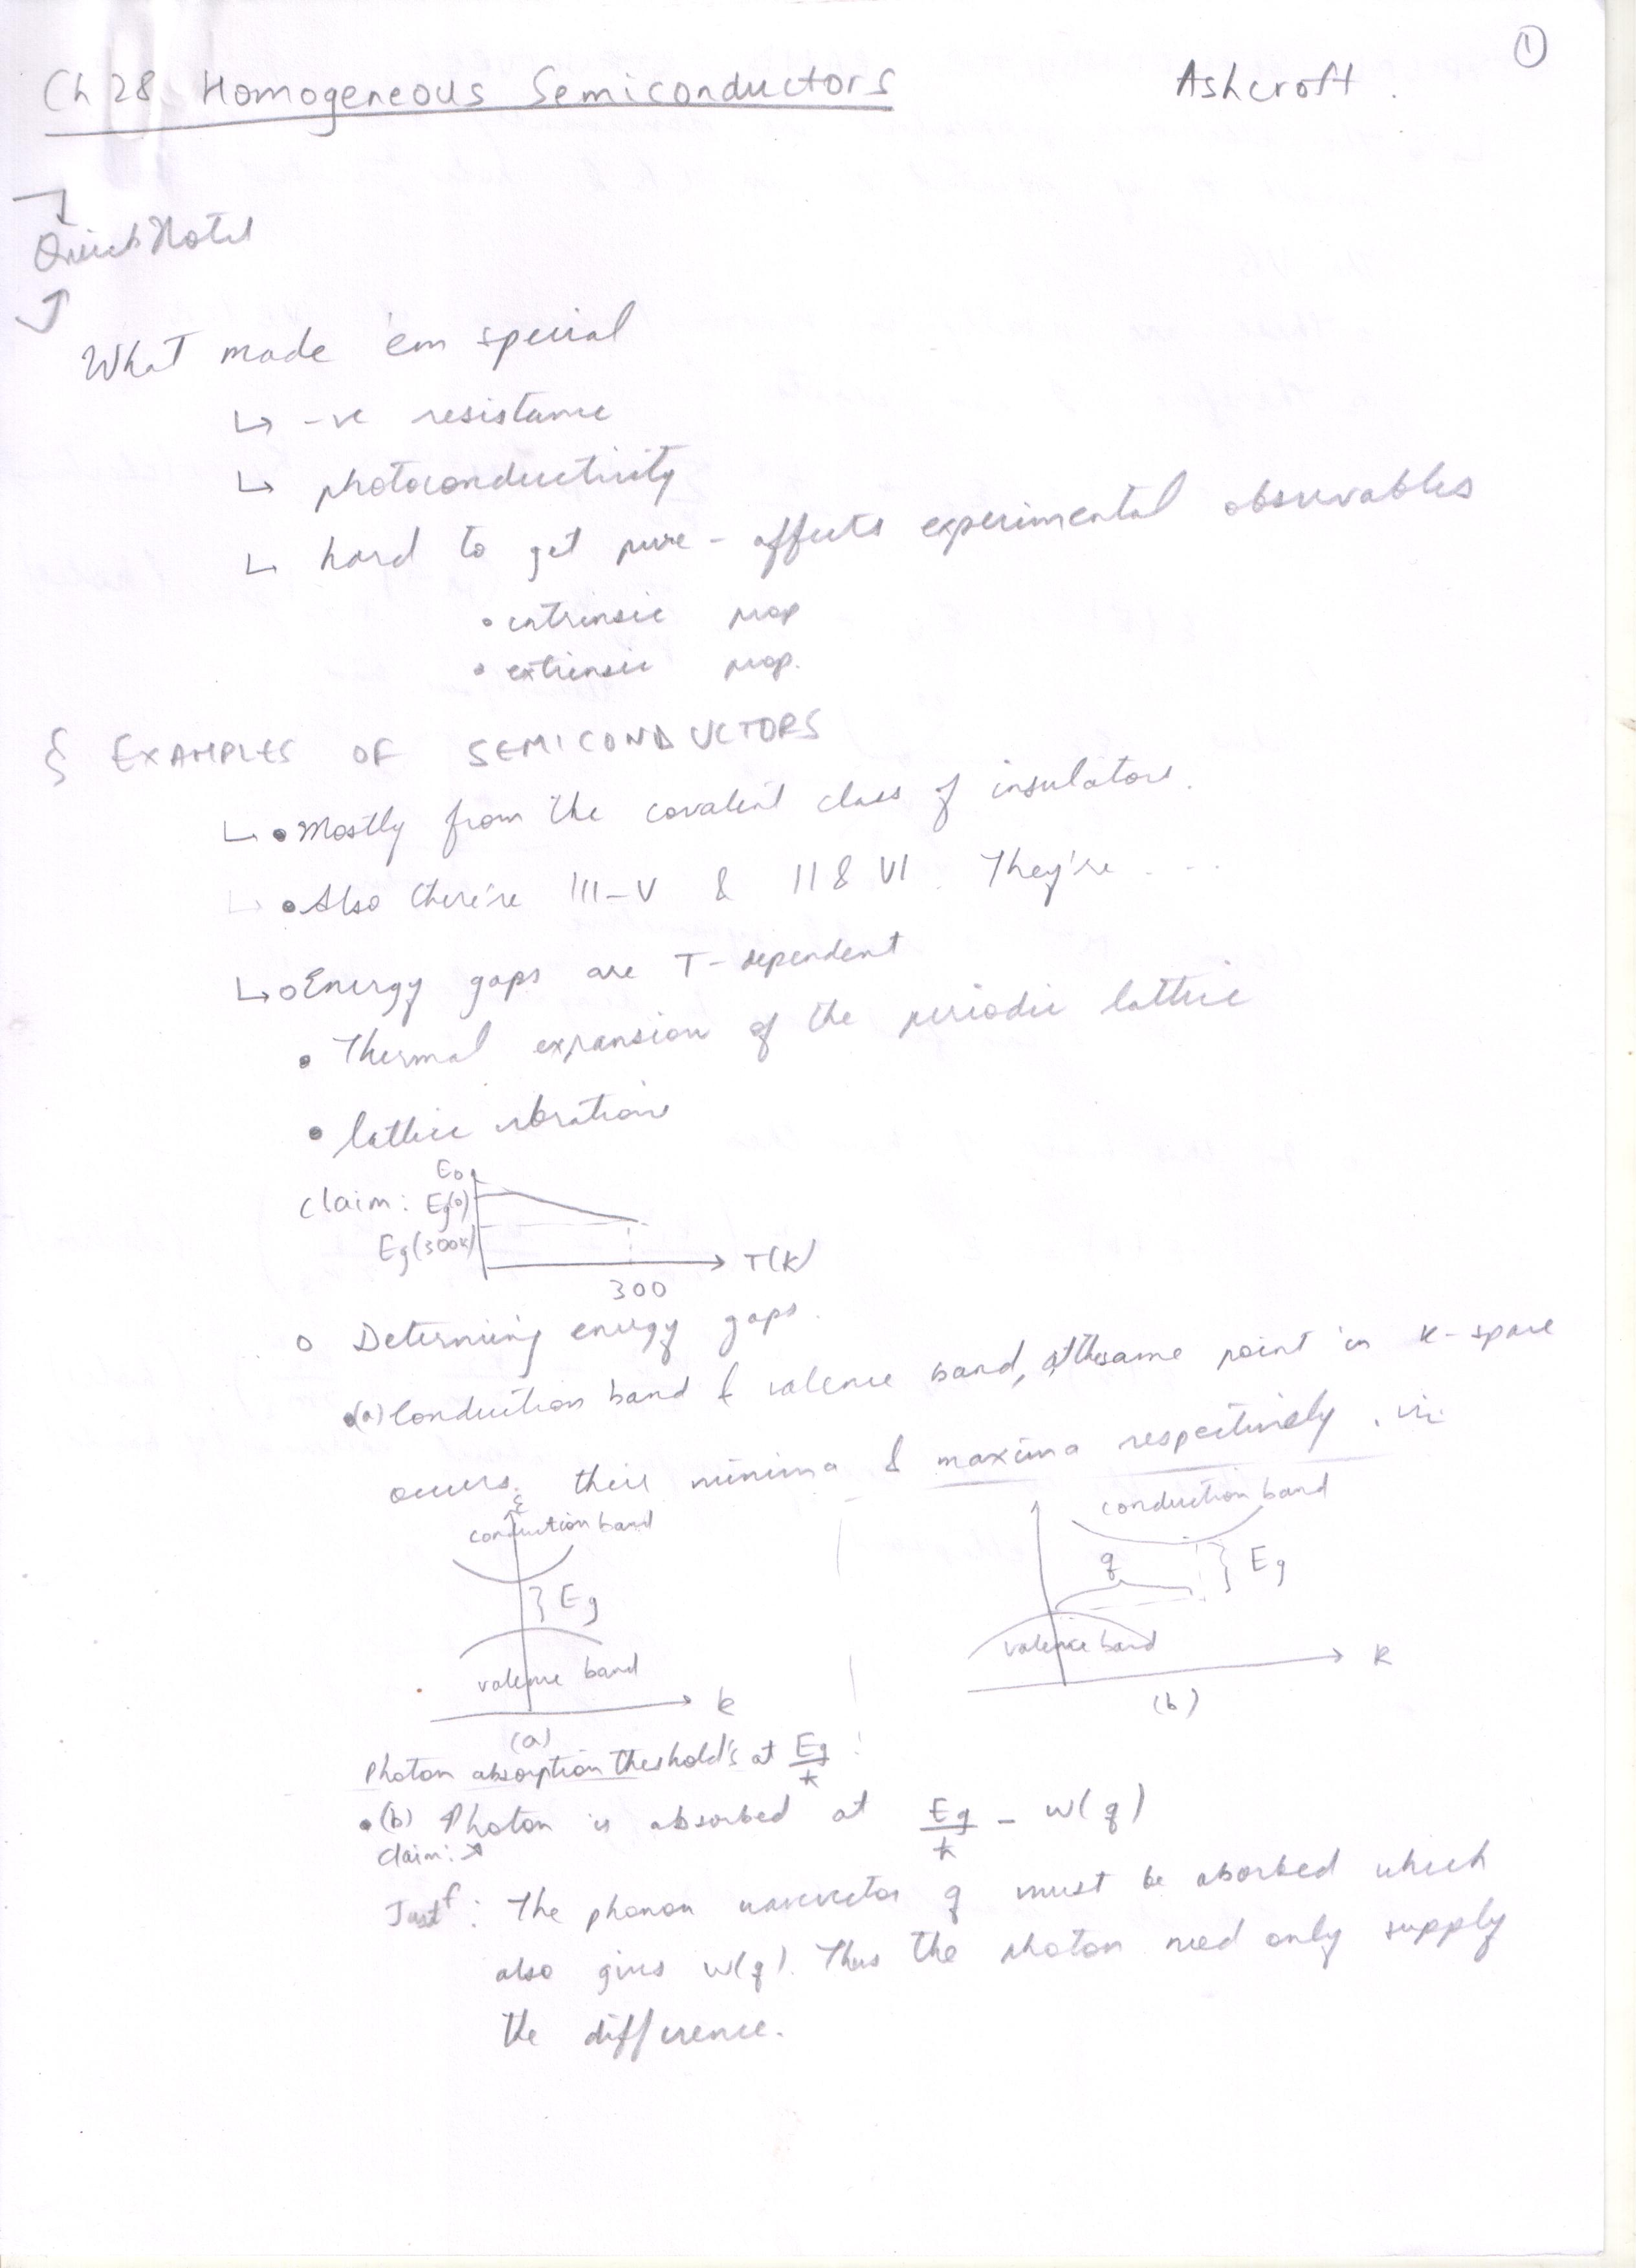 ①
Ch 28 Homogeneous Semiconductors Ashcroft.
Quick Notes
What made 'em special
↳ -ve resistance
↳ photoconductivity
↳ hard to get pure - affects experimental observables
• intrinsic prop
• extrinsic prop.
§ EXAMPLES OF SEMICONDUCTORS
↳ • Mostly from the covalent class of insulators.
↳ • Also there're III-V & II & VI. They're ....
↳ o Energy gaps are T-dependent
• Thermal expansion of the periodic lattice
• lattice vibrations
E₀
claim: Eg(0)
Eg(300K)
T(K)
300
o Determinig energy gaps.
• (a) Conduction band & valence band, at the same point in k-space
occurs, their minima & maxima respectively. viz
ε
conduction band
Eg
valence band
k
(a)
conduction band
q
Eg
valence band
k
(b)
Photon absorption threshold's at Eg/ħ
• (b) Photon is absorbed at Eg/ħ - ω(q)
claim: ↗
Justᶠ: The phonon wavevector q must be aborbed which
also gives ω(q). Thus the photon need only supply
the difference.